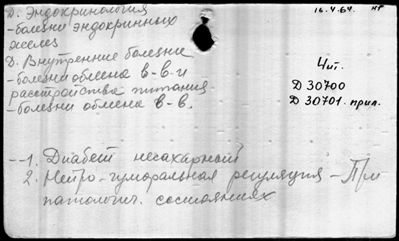 16.4.64. НР
Д. Эндокринология
- болезни эндокринных
желез
Д. Внутренние болезни
- болезни обмена в-в и
расстройства питания
- болезни обмена в-в.
Чит.
Д 30700
Д 30701. прил.
--1. Диабет несахарный
2. Нейро-гуморальная регуляция - При
патологич. состояниях